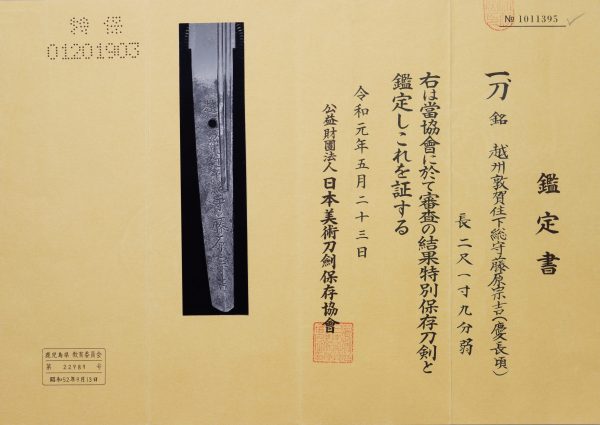 № 1011395
鑑定書
一、刀 銘 越州敦賀住下総守藤原宗吉(慶長頃)
長 二尺一寸九分弱
右は當協會に於て審査の結果特別保存刀剣と
鑑定しこれを証する
令和元年五月二十三日
公益財團法人 日本美術刀劍保存協會
特保
01201903
鹿児島県 教育委員会
第 22989 号
昭和52年9月13日